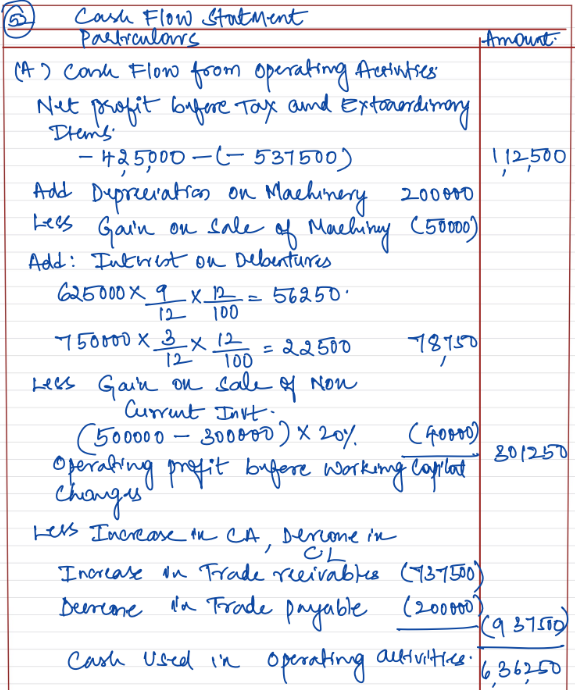 53 Cash Flow Statment
Particulars Amount.
(A) Cash Flow from Operating Activities
Net profit before Tax and Extaoardinary
Items.
- 425,000 - (- 537500) 1,12,500
Add Depreciation on Machinery 200000
Less Gain on Sale of Machiny (50000)
Add: Interest on Debentures
625000 x 9/12 x 12/100 = 56250.
750000 x 3/12 x 12/100 = 22500 78,750
Less Gain on Sale of Non
Current Invt.
(500000 - 300000) x 20% (40000) 301250
Operating profit before working Capital
Changes
Less Increase in CA, Decrease in
CL
Increase in Trade receivables (737500)
Decrease in Trade payable (200000) (937500)
Cash Used in Operating activities. 6,36,250